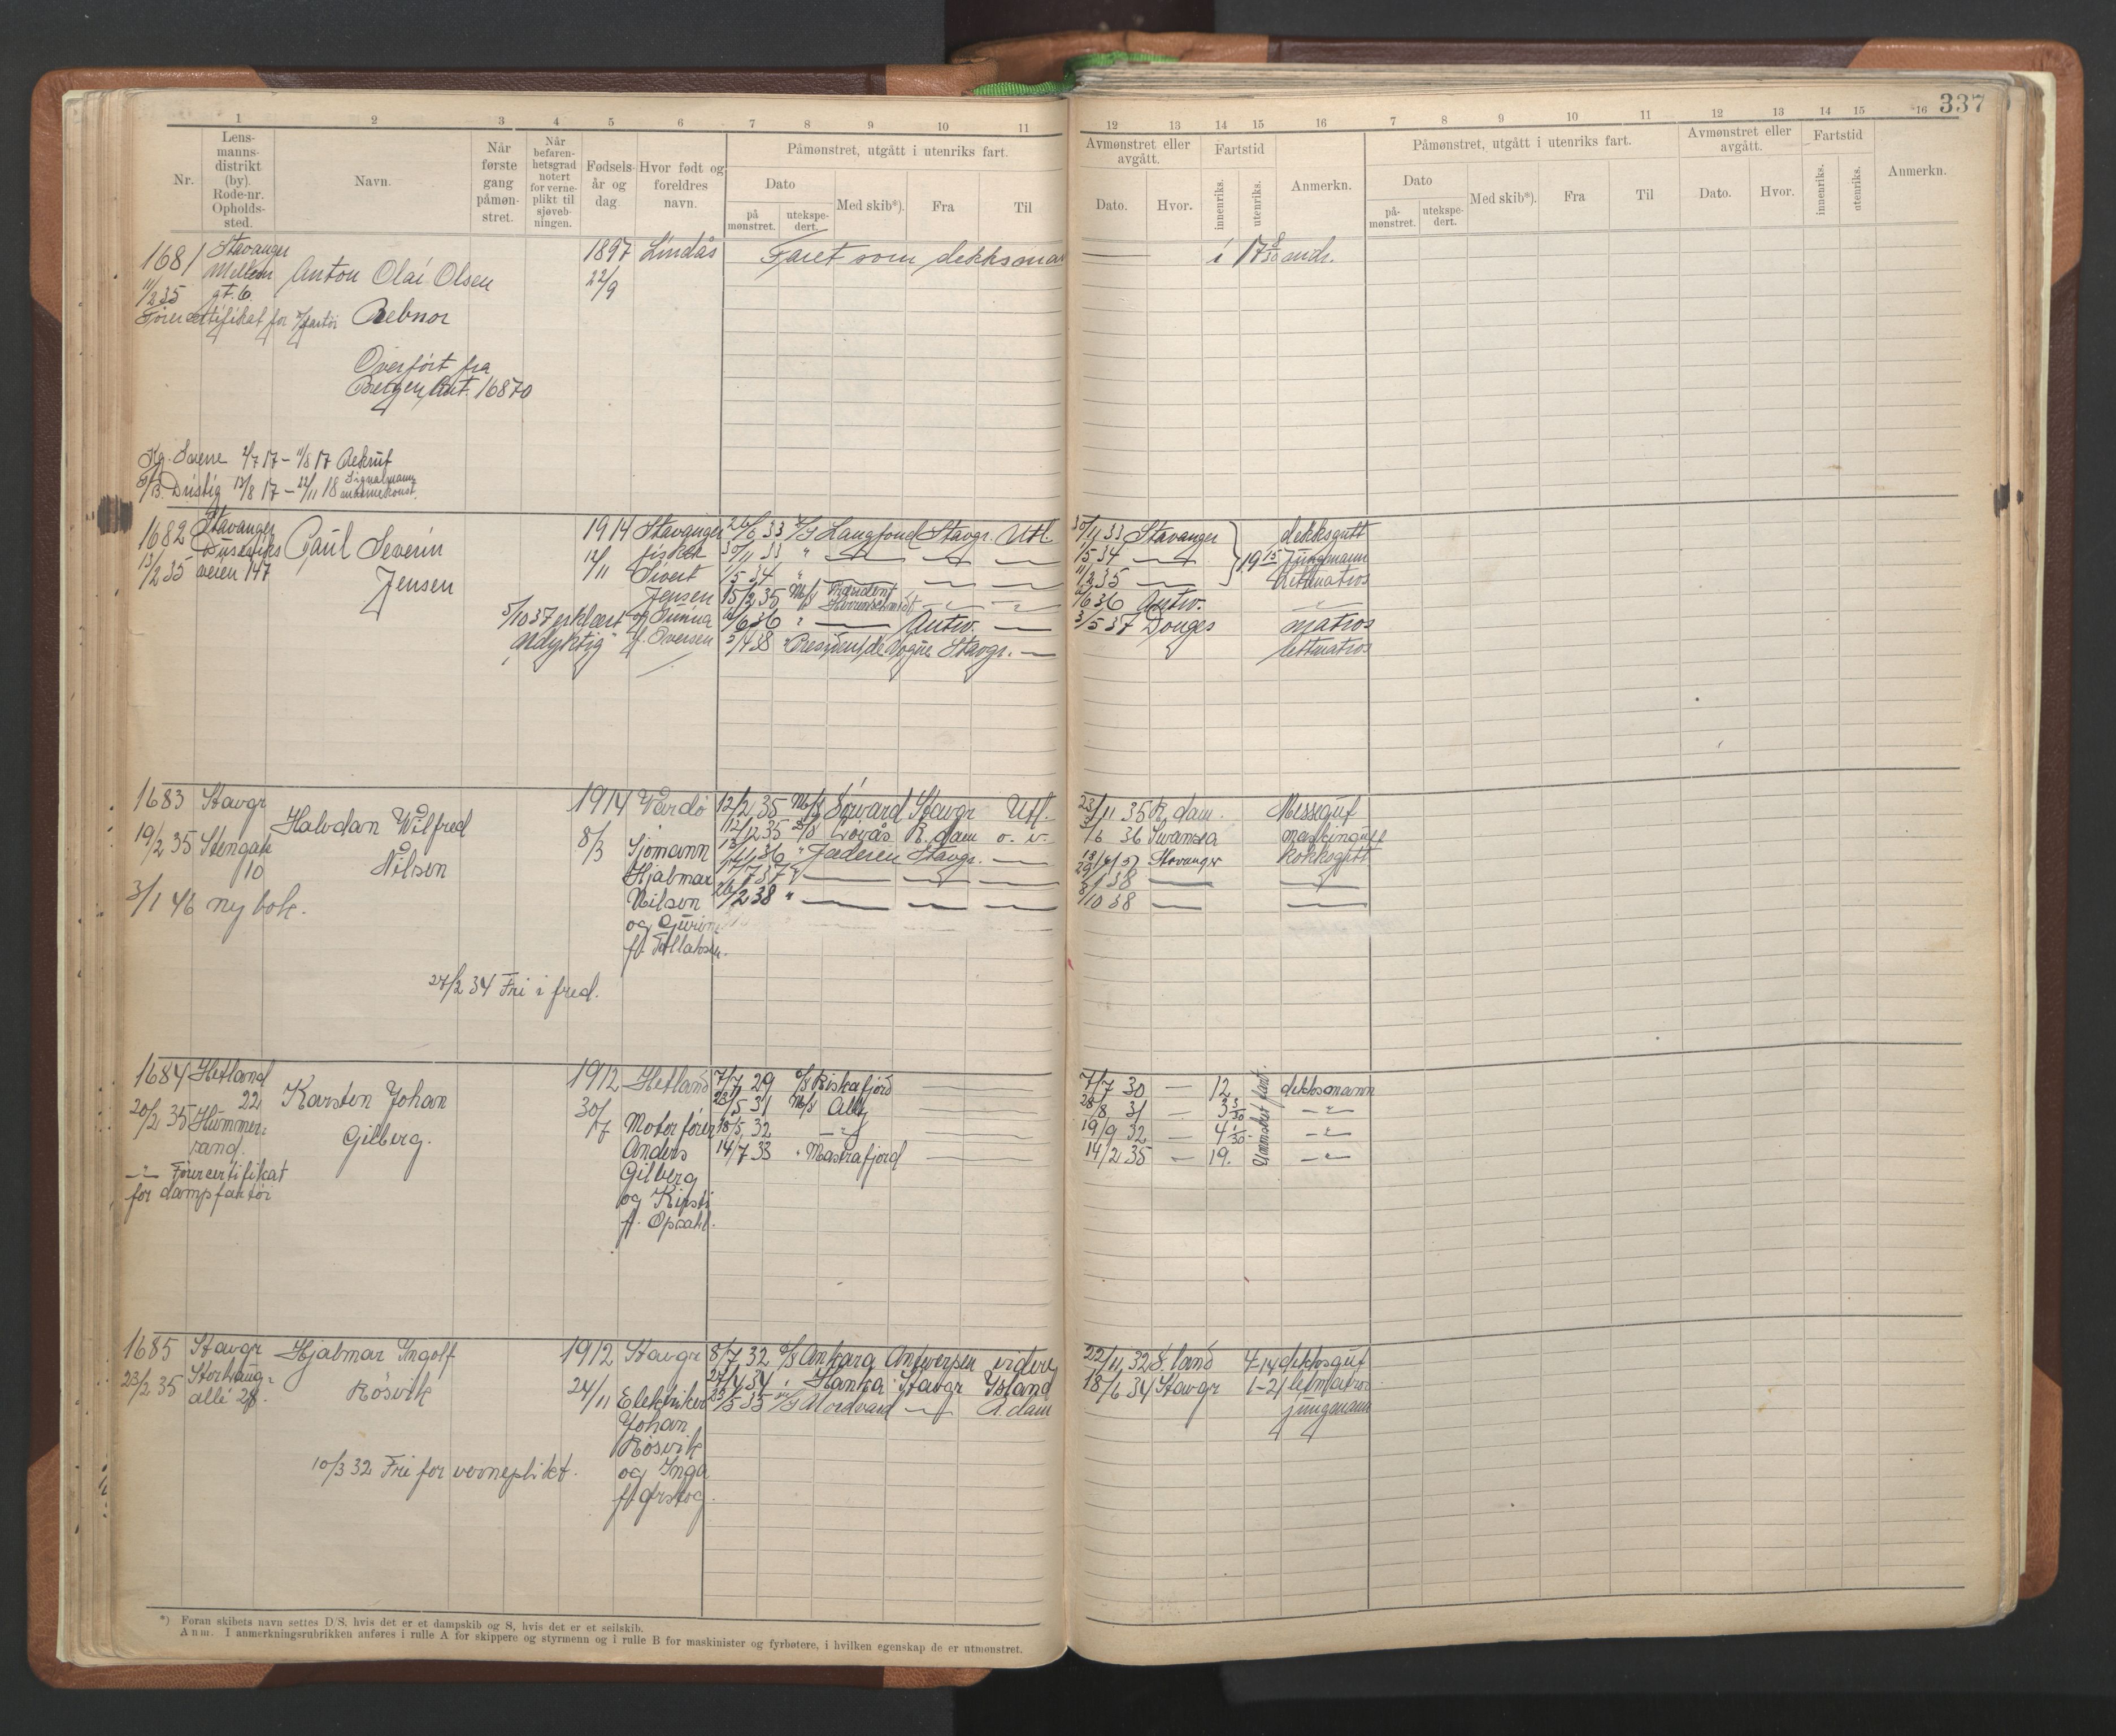 337
1 2 3 4 5 6 7 8 9 10 11 12 13 14 15 16 7 8 9 10 11 12 13 14 15 16
Nr.
Lens-
manns-
distrikt
(by).
Rode-nr.
Opholds-
sted.
Navn.
Når
første
gang
påmøn-
stret.
Når
befaren-
hetsgrad
notert
for verne-
plikt til
sjøveb-
ningen.
Fødsels-
år og
dag
Hvor født og
foreldres
navn.
Påmønstret, utgått i utenriks fart.
Dato
på
mønstret.
utekspe-
dert.
Med skib*).
Fra
Til
Avmønstret eller
avgått.
Dato.
Hvor.
Fartstid
innenriks.
utenriks.
Anmerkn.
Påmønstret, utgått i utenriks fart.
Dato
på-
mønstret.
utekspe-
dert.
Med skib*).
Fra
Til
Avmønstret eller
avgått.
Dato.
Hvor.
Fartstid
innenriks.
utenriks.
Anmerkn.
1681 Stavanger 1897 Lindås Faret som dekksman — i 17 8/30 mdr.
Mellem Anton Olai Olsen 22/9
11/2 35 gt. 6.
Førercertifikat for Rebnor
Overført fra
Bergen Ant. 16870
Kg. Sverre 2/7 17 – 11/8 17 Rekrut
Dristig 12/8 17 – 22/11 18 Signalmann
1682 Stavanger Paul Severin 1914 Stavanger 26/6 33 Langfond Stavgr. Utl. 30/11 33 Stavanger dekksgutt
13/2 35 veien 147 Jensen 12/11 fisker 30/11 33 " — — — 1/5 34 — 19 15 Jungmann
Sivert 1/5 34 " — — 11/2 35 — lettmatros
Jensen 15/2 35 M/S — — 6 36 Antw. —
5/10 37 erklært og Gunna 6 36 " — Antw. — 3/5 37 Donges matros
"Udyktig" f. Iversen 5/4 38 President de Vogue Stavgr. — lettmatros
1683 Stavgr 1914 Vardø 12/2 35 M/S Sørvard Stavgr Utl. 23/11 35 R.dam. Messegut
Halvdan Wilfred
19/2 35 Stengan 8/3 Sjømann 12/12 35 R.dam o. v. 36 Swansea maskingutt
10 Nilsen Hjalmar 36 " Jæderen Stavgr. — Stavanger kokksgutt
37 " — — — 38 — —
3/1 46 ny bok. Nilsen 26/2 38 " — — — /10 38 — —
og
f.
27/2 34 Fri i fred.
1684 Hetland 1912 Hetland 7/7 29 Riskafjord — 7/7 30 — 12 dekksmann
22 Karsten Johan 30/7 5 31 M/S Ally — 28/8 31 — 3 3/30 —"—
20/2 35 Hummer= Motorfører 18/5 32 —"— — 19/9 32 — 4 1/30 —"—
sand. Gilberg. Anders 14/7 33 " Mastrafjord — 14/2 35 — 19. —"—
—"— Førercertifikat Gilberg
for dampfartøi og Kirsti
f. Opsahl.
1685 Stavgr Hjalmar Ingolf 1912 Stavgr 8/7 32 Ankara Antwerpen videre 22/11 32 S.land 4-14 dekksgut
23/2 35 Storhaug= Røsvik 24/11 Elektriker 4 34 " Hanka Stavgr Island 18/6 34 Stavgr 1-21 letmatros
allé 28. Johan 5 35 Nordvard — R.dam jungmann
Røsvik
10/3 32 Fri for verneplikt. og Inga
f. Ørstog.
*) Foran skibets navn settes D/S, hvis det er et dampskib og S, hvis det er et seilskib.
Anm. I anmerkningsrubrikken anføres i rulle A for skippere og styrmenn og i rulle B for maskinister og fyrbøtere, i hvilken egenskap de er utmønstret.